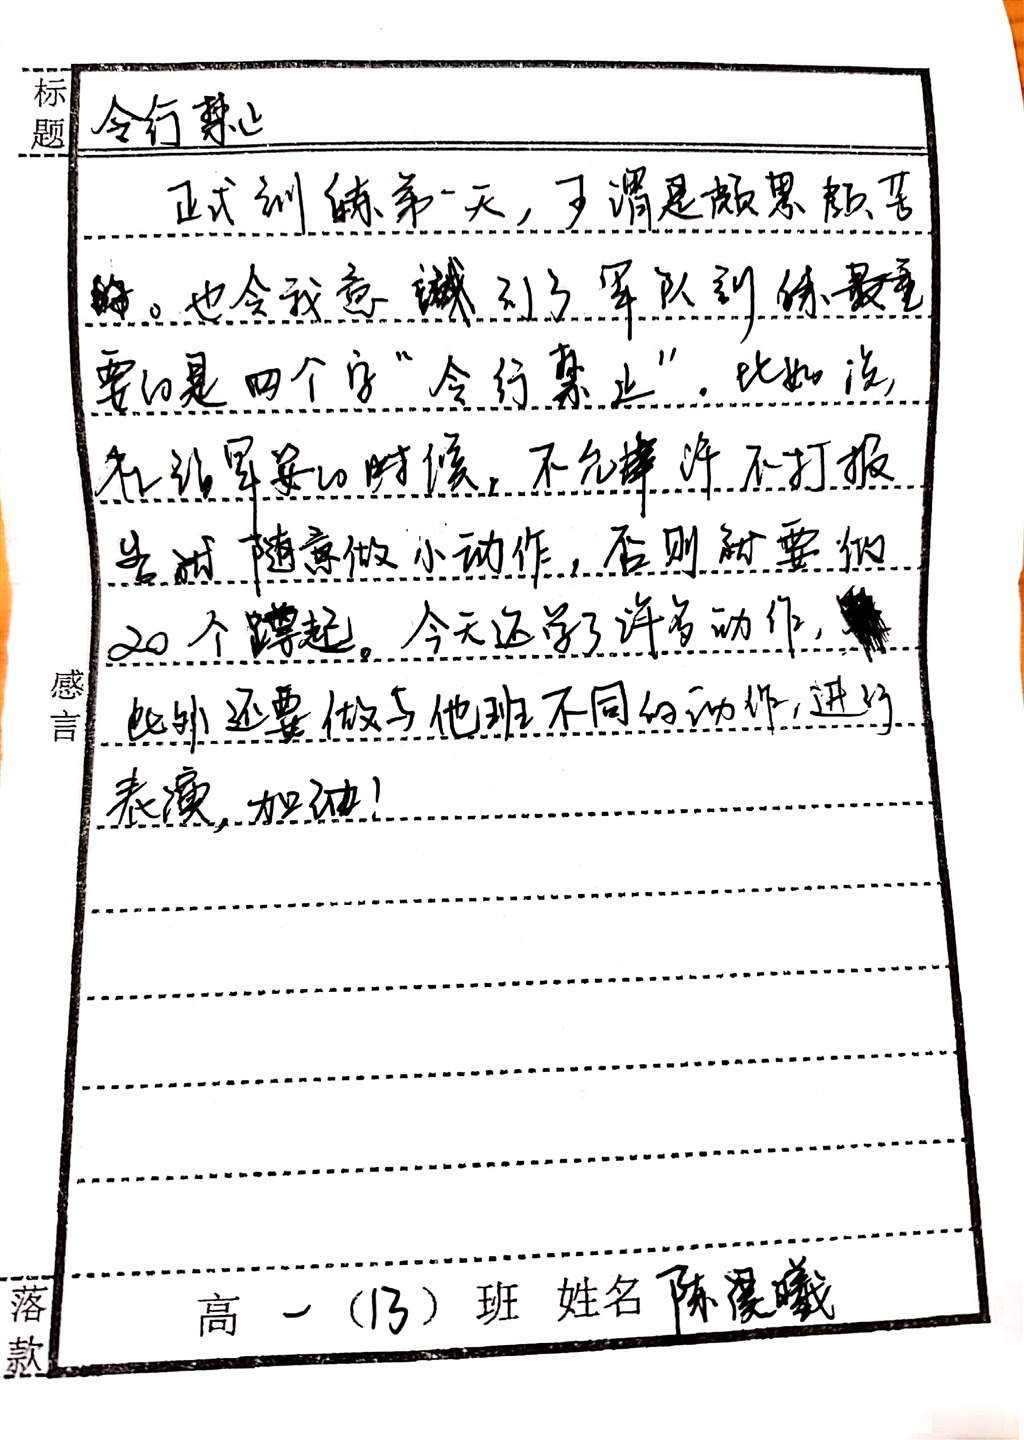 标题
令行禁止
正式训练第一天，可谓是颇累颇苦
的。也令我意识到了军队训练最重
要的是四个字“令行禁止”。比如说，
在站军姿的时候，不允许不打报
告就随意做小动作，否则就要做
20个蹲起。今天还学了许多动作，
此外还要做与他班不同的动作，进行
表演，加油！
感言
落款
高一（13）班 姓名 陈曦